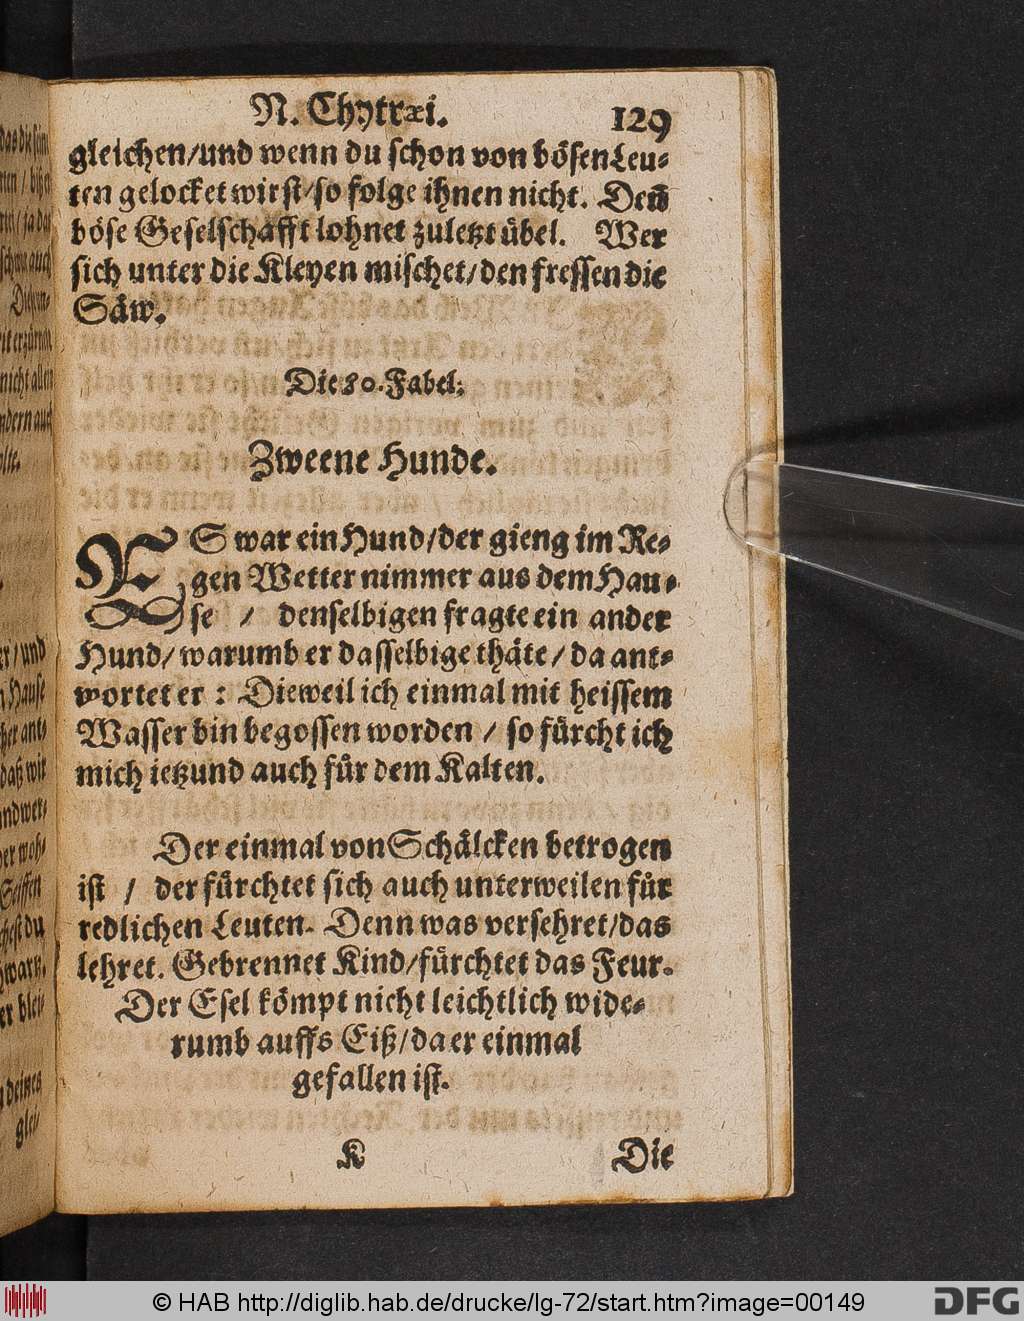 N. Chytræi. 129
gleichen/und wenn du schon von bösen Leu-
ten gelocket wirst/so folge ihnen nicht. Deñ
böse Geselschafft lohnet zuletzt übel. Wer
sich unter die Kleyen mischet/den fressen die
Säw.
Die 80. Fabel.
Zweene Hunde.
ES war ein Hund/der gieng im Re-
gen Wetter nimmer aus dem Hau-
se / denselbigen fragte ein ander
Hund/warumb er dasselbige thäte/da ant-
wortet er: Dieweil ich einmal mit heissem
Wasser bin begossen worden / so fürcht ich
mich ietzund auch für dem Kalten.
Der einmal von Schälcken betrogen
ist / der fürchtet sich auch unterweilen für
redlichen Leuten. Denn was versehret/das
lehret. Gebrennet Kind/fürchtet das Feur.
Der Esel kömpt nicht leichtlich wide-
rumb auffs Eiß/da er einmal
gefallen ist.
K Die
© HAB http://diglib.hab.de/drucke/lg-72/start.htm?image=00149
DFG